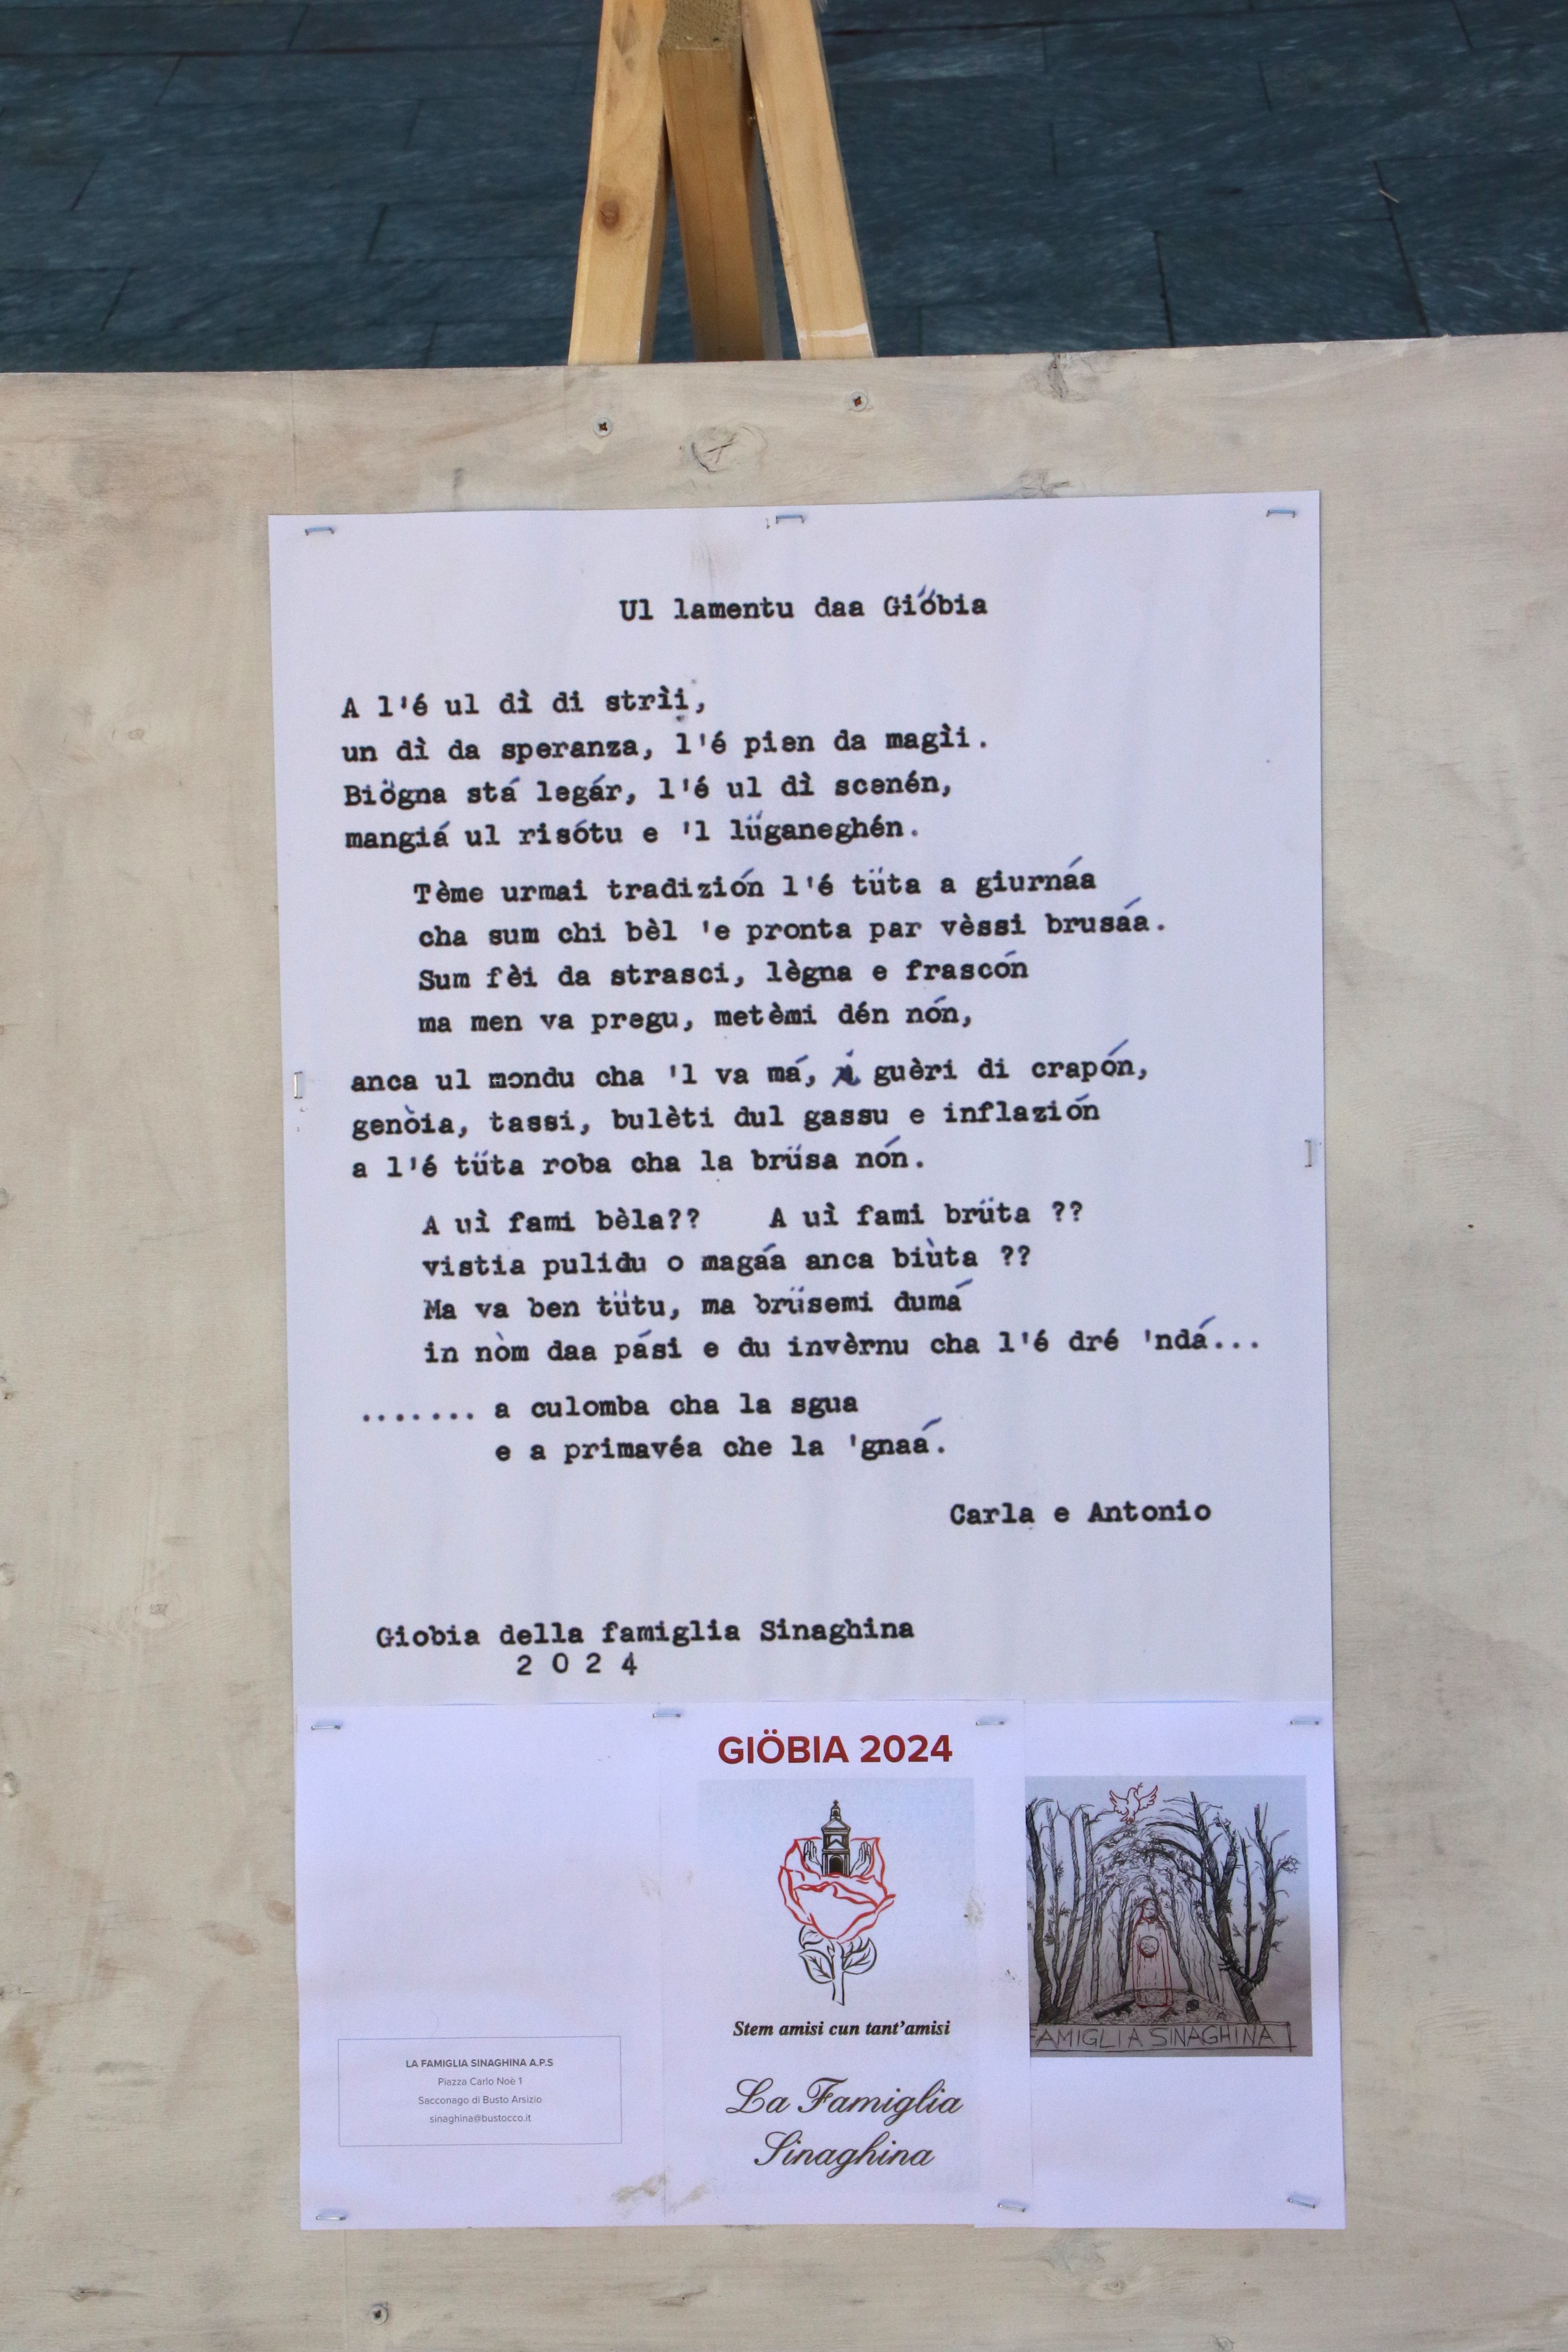 Ul lamentu daa Giőbia
A l'é ul dì di strìi,
un dì da speranza, l'é pien da magìi.
Biögna stá legár, l'é ul dì scenén,
mangiá ul risótu e 'l lüganeghén.
Tème urmai tradizión l'é tüta a giurnáa
cha sum chi bèl 'e pronta par vèssi brusáa.
Sum fèi da strasci, lègna e frascón
ma men va pregu, metèmi dén nón,
anca ul mondu cha 'l va má, i guèri di crapón,
genòia, tassi, bulèti dul gassu e inflazión
a l'é tüta roba cha la brüsa nón.
A uì fami bèla?? A uì fami brüta ??
vistia pulidu o magáa anca biùta ??
Ma va ben tütu, ma brüsemi dumá
in nòm daa pási e du invèrnu cha l'é dré 'ndá...
....... a culomba cha la sgua
e a primavéa che la 'gnaá.
Carla e Antonio
Giobia della famiglia Sinaghina
2 0 2 4
GIÖBIA 2024
Stem amisi cun tant'amisi
La Famiglia
Sinaghina
FAMIGLIA SINAGHINA
LA FAMIGLIA SINAGHINA A.P.S
Piazza Carlo Noè 1
Sacconago di Busto Arsizio
sinaghina@bustocco.it